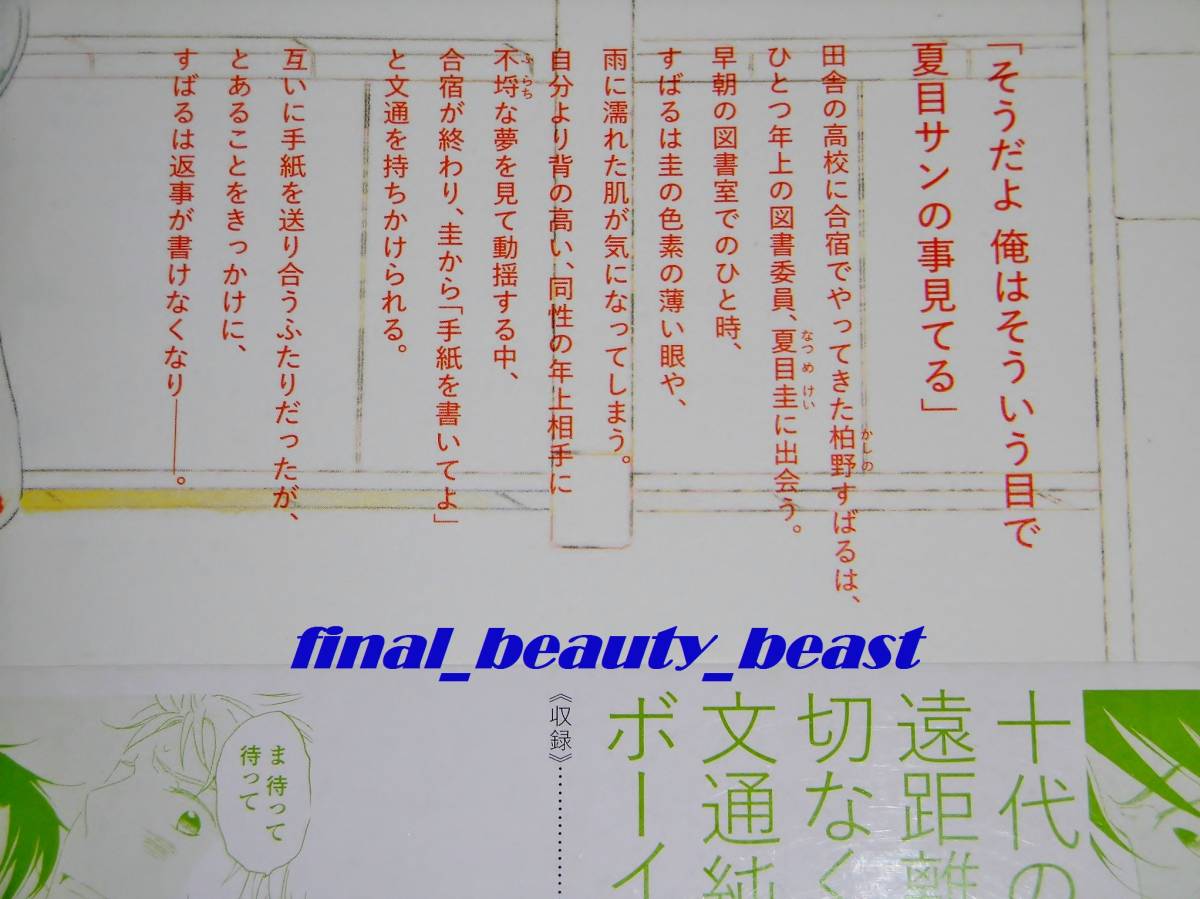 「そうだよ 俺はそういう目で
夏目サンの事見てる」
田舎の高校に合宿でやってきた柏野すばるは、
かしの
ひとつ年上の図書委員、夏目圭に出会う。
なつめけい
早朝の図書室でのひと時、
すばるは圭の色素の薄い眼や、
雨に濡れた肌が気になってしまう。
自分より背の高い、同性の年上相手に
不埒な夢を見て動揺する中、
ふらち
合宿が終わり、圭から「手紙を書いてよ」
と文通を持ちかけられる。
互いに手紙を送り合うふたりだったが、
とあることをきっかけに、
すばるは返事が書けなくなり――。
final_beauty_beast
十代の
遠距離
切なく
文通純
ボーイ
《収録》…………
ま 待って
待って